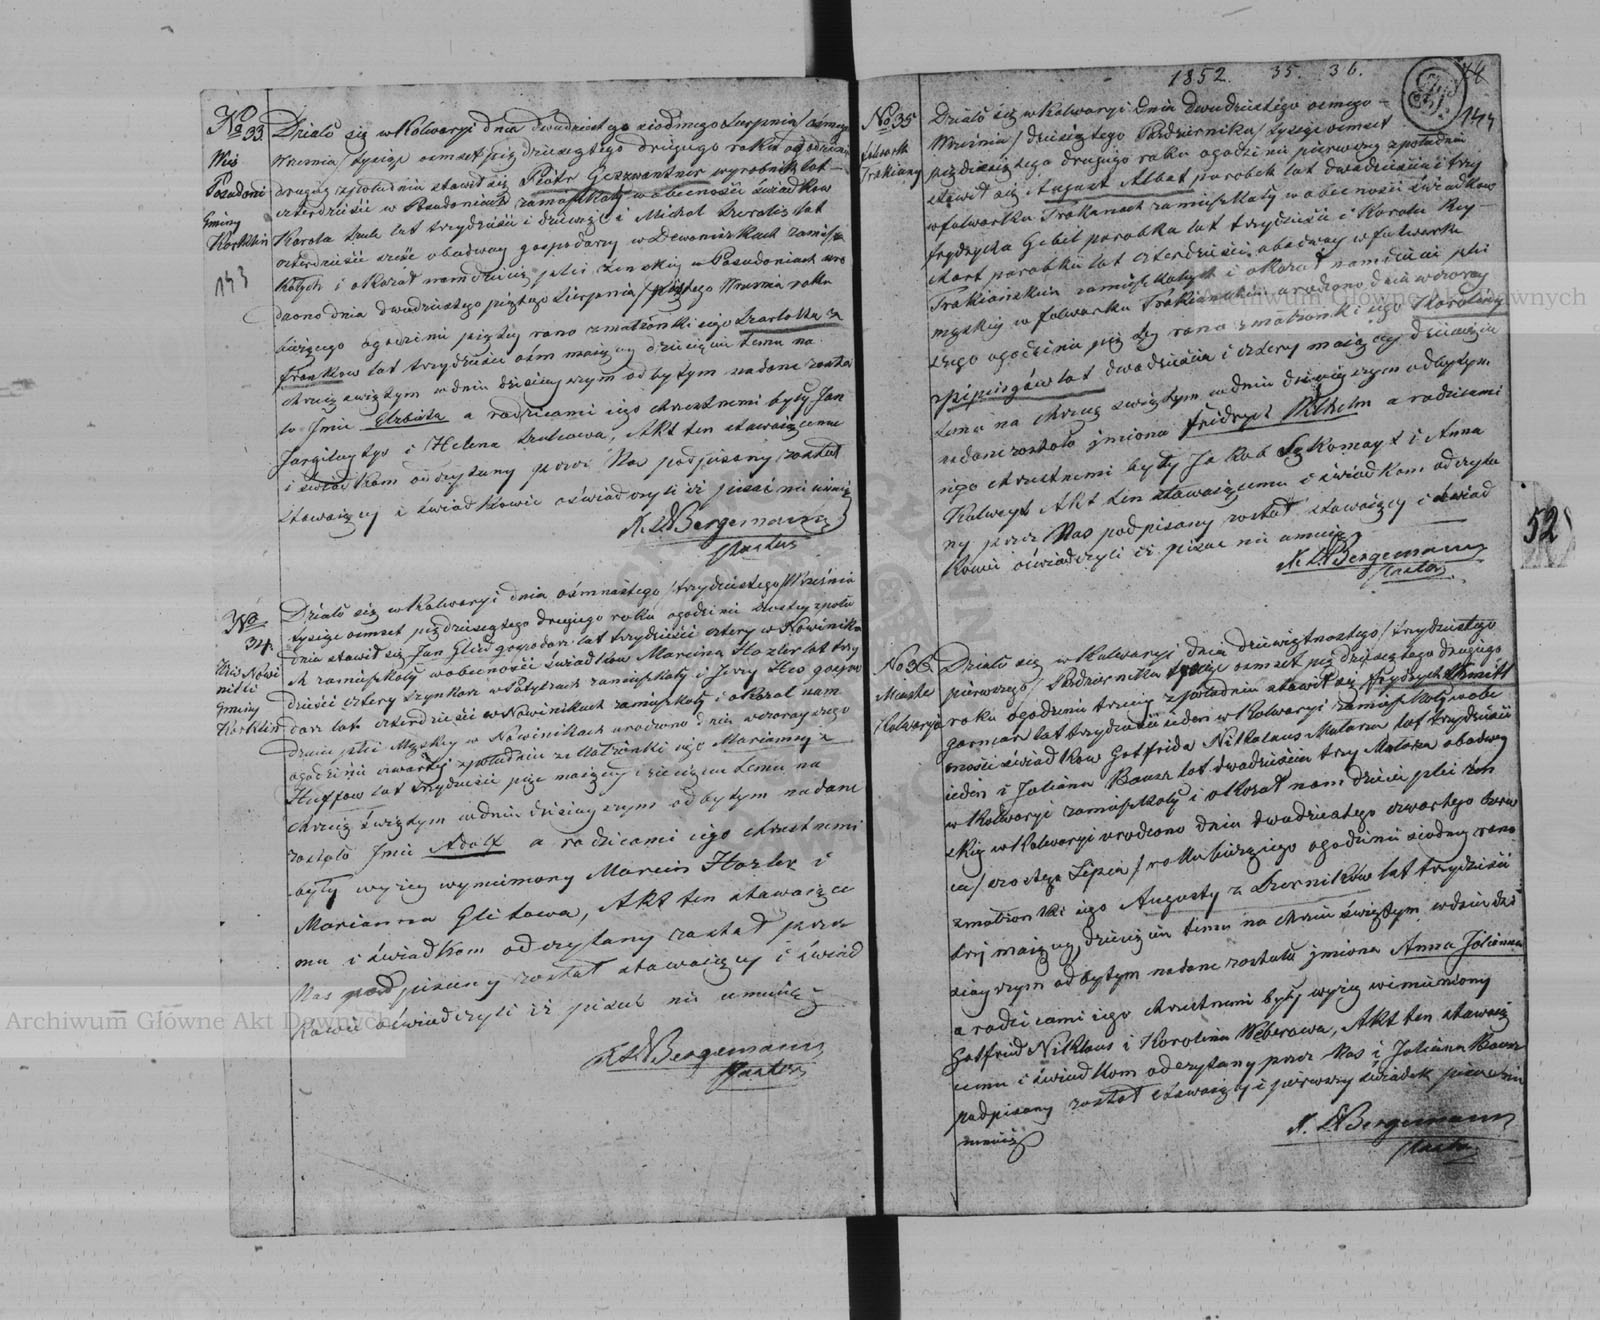 No 33
Wieś
Posudoni
Gminy
Kirsklin
143
Działo się w Kalwaryi dnia dwudziestego siodmego Sierpnia / osmego
Września / tysiąc osmset pięćdziesiątego drugiego roku o godzinie
drugiey z południa stawił się Piotr Gerzwantner wyrobnik lat
czterdzieści w Posudoniach zamieszkały w obecności świadków
Karola lat trzydzieści i dziewięć i Michał lat
czterdzieści sześć obadway gospodarzy w zamiesz
kałych i okazał nam dziecię płci żeńskiey w Posudoniach uro
dzono dnia dwudziestego piątego Sierpnia / szóstego Września roku
bieżącego o godzinie piątey rano z małżonki iego Szarlotta z
Franków lat trzydzieści osm maiącey dziecięciu temu na
chrzcie świętym w dniu dzisieyszym odbytym nadane zosta
ło Imie Elżbieta a rodzicami iego chrzestnemi byli Jan
i Helena Akt ten stawaiącemu
i świadkom odczytany przez Nas podpisany został
stawaiący i świadkowie oświadczyli iż pisać nie umieią
K. L. Bergemann
Pastor
No
34.
Wieś Nowi
niki
Gminy
Kirsklin
Działo się w Kalwaryi dnia ośmnastego / trzydziestego / Września
tysiąc osmset pięćdziesiątego drugiego roku o godzinie szóstey z połu
dnia stawił się Jan Glied gospodarz lat trzydzieści cztery w Nowinika
ch zamieszkały w obecności świadków Marcina Hozler lat trzy
dzieści cztery szynkarz w zamieszkały i Jerzy gospo
darz lat czterdzieści w Nowinikach zamieszkały i okazał nam
dziecię płci Męskiey w Nowinikach urodzono dnia wczorayszego
o godzinie czwartey z południa z Małżonki iego Marianny z
Huffow lat trzydzieści pięć maiącey dziecięciu temu na
chrzcie świętym w dniu dzisieyszym odbytym nadane
zostało Imie Adolf a rodzicami iego chrzestnemi
byli wyżey wymieniony Marcin Hozler i
Marianna Glitowa, Akt ten stawaiące
mu i świadkom odczytany został przez
Nas podpisany został stawaiący i świad
kowie oświadczyli iż pisać nie umieią
K. L. Bergemann
Pastor
1852. 35. 36.
44
144
No 35
folwark
Trakiany
Działo się w Kalwaryi Dnia Dwudziestego osmego
Września / dziesiątego Października / tysiąc osmset
pięćdziesiątego drugiego roku o godzinie pierwszey z południa
stawił się August Albat parobek lat dwadzieścia trzy
w folwarku Trakianach zamieszkały w obecności świadków
Frydrycha Gebel parobka lat trzydzieści i Karola Rey
chart parobka lat czterdzieści obadway w folwarku
Trakiańskim zamieszkałych i okazał nam dziecię płci
męskiey w folwarku Trakiańskim urodzono dnia wczoray
szego o godzinie piątey rano z małżonki iego Karoliny
z lat dwadzieścia i cztery maiącey dziecięciu
temu na chrzcie świętym w dniu dzisieyszym odbytym
nadane zostało imiona Fridrych Wilhelm a rodzicami
iego chrzestnemi byli Jakob Szkomayt i Anna
Kalweyt Akt ten stawaiącemu i świadkom odczyta
ny przez Nas podpisany został stawaiący i świad
kowie oświadczyli iż pisać nie umieią
K. L. Bergemann
Pastor
52
No 36
Miasto
Kalwarya
Działo się w Kalwaryi dnia dziewiętnastego / trzydziestego
pierwszego / Października tysiąc osmset pięćdziesiątego drugiego
roku o godzinie trzeciey z południa stawił się Frydrych Szmitt
garncarz lat trzydzieści ieden w Kalwaryi zamieszkały w obe
cności świadków Gotfrida Nitklaus Malarza lat trzydzieści
ieden i Juliana Bausz lat dwadzieścia trzy Malarza obadwa
w Kalwaryi zamieszkały i okazał nam dziecię płci żeń
skiey w Kalwaryi urodzono dnia dwudziestego czwartego Czerw
ca / szóstego Lipca / roku bieżącego o godzinie siodmey rano
z małżonki iego Augusty z lat trzydzieści
trzy maiącey dziecięciu temu na chrzcie świętym w dniu dzi
sieyszym odbytym nadane zostało imiona Anna Julianna
a rodzicami iego chrzestnemi byli wyżey wymieniony
Gotfried Nitklaus i Karolina Weberowa, Akt ten stawaią
cemu i świadkom odczytany przez Nas i Juliana Bausz
podpisany został stawaiący i pierwszy świadek pisać nie
umieią
K. L. Bergemann
Pastor
Archiwum Główne Akt Dawnych
Archiwum Główne Akt Dawnych